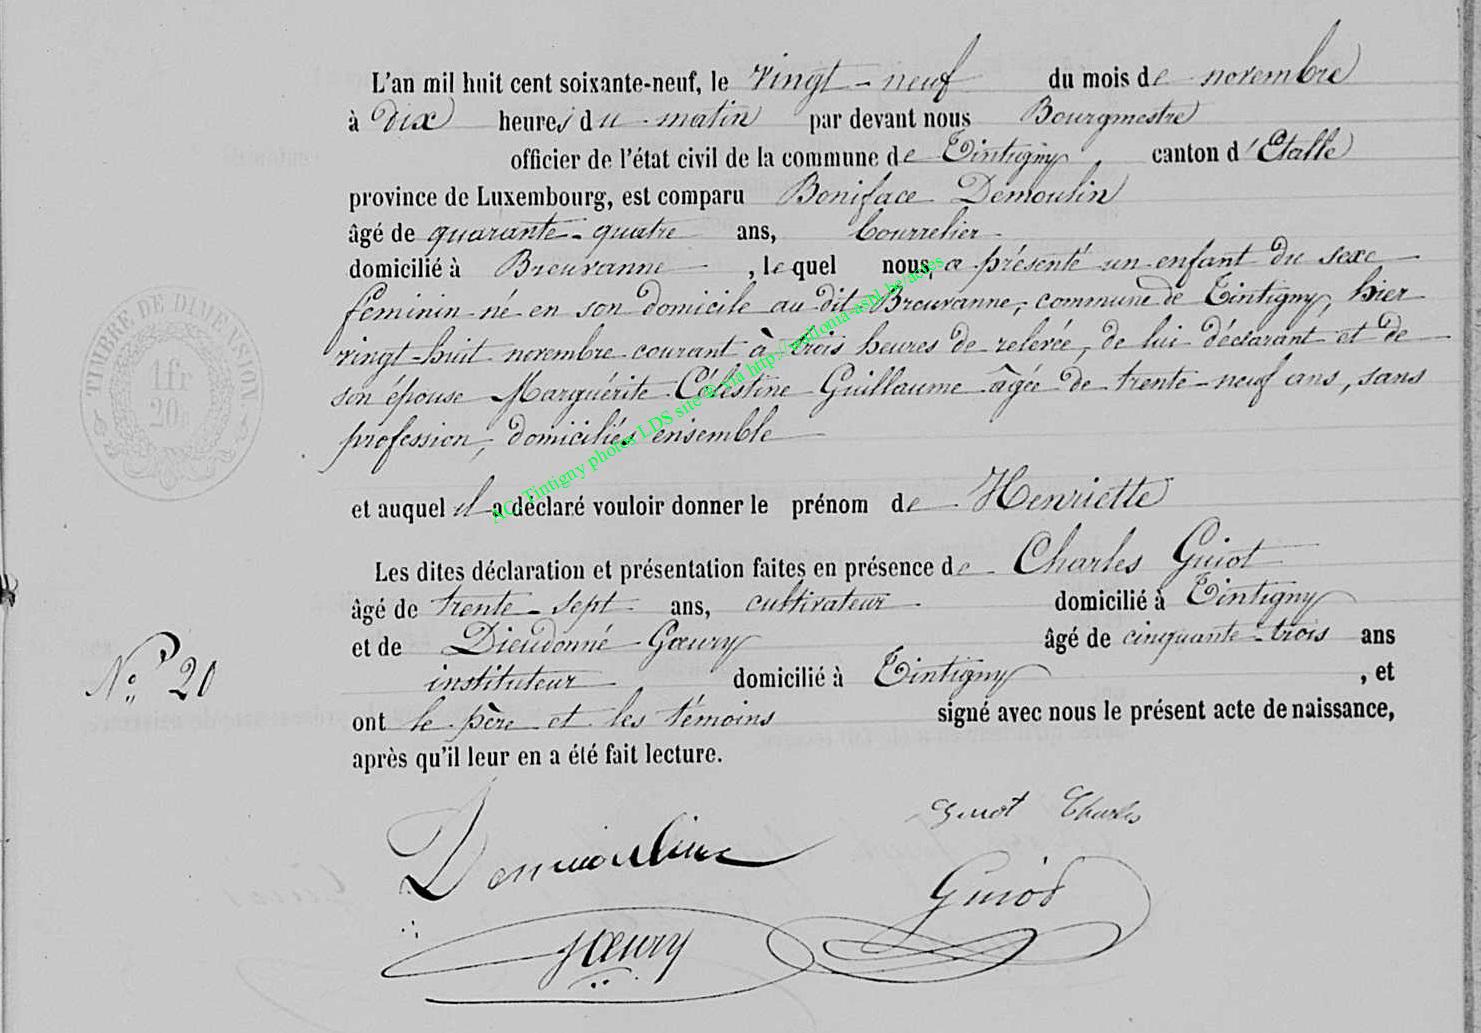 L'an mil huit cent soixante-neuf, le vingt-neuf du mois de novembre
à dix heures du matin par devant nous Bourgmestre
officier de l'état civil de la commune de Tintigny, canton d'Etalle
province de Luxembourg, est comparu Boniface Demoulin
âgé de quarante-quatre ans, bourrelier
domicilié à Breuvanne, lequel nous a présenté un enfant du sexe
féminin né en son domicile au dit Breuvanne, commune de Tintigny, hier
vingt-huit novembre courant à trois heures de relevée, de lui déclarant et de
son épouse Marguérite Célestine Guillaume âgée de trente-neuf ans, sans
profession, domiciliés ensemble
et auquel il a déclaré vouloir donner le prénom de Henriette
Les dites déclaration et présentation faites en présence de Charles Guiot
âgé de trente-sept ans, cultivateur domicilié à Tintigny
et de Dieudonné Gœury âgé de cinquante-trois ans
instituteur domicilié à Tintigny, et
ont le père et les témoins signé avec nous le présent acte de naissance,
après qu'il leur en a été fait lecture.
N° 20
TIMBRE DE DIMENSION
1 fr
20c
AC Tintigny photos LDS site © via http://wallonia-asbl.be/actes
Demoulin
Guiot Charles
Guiot
Gœury